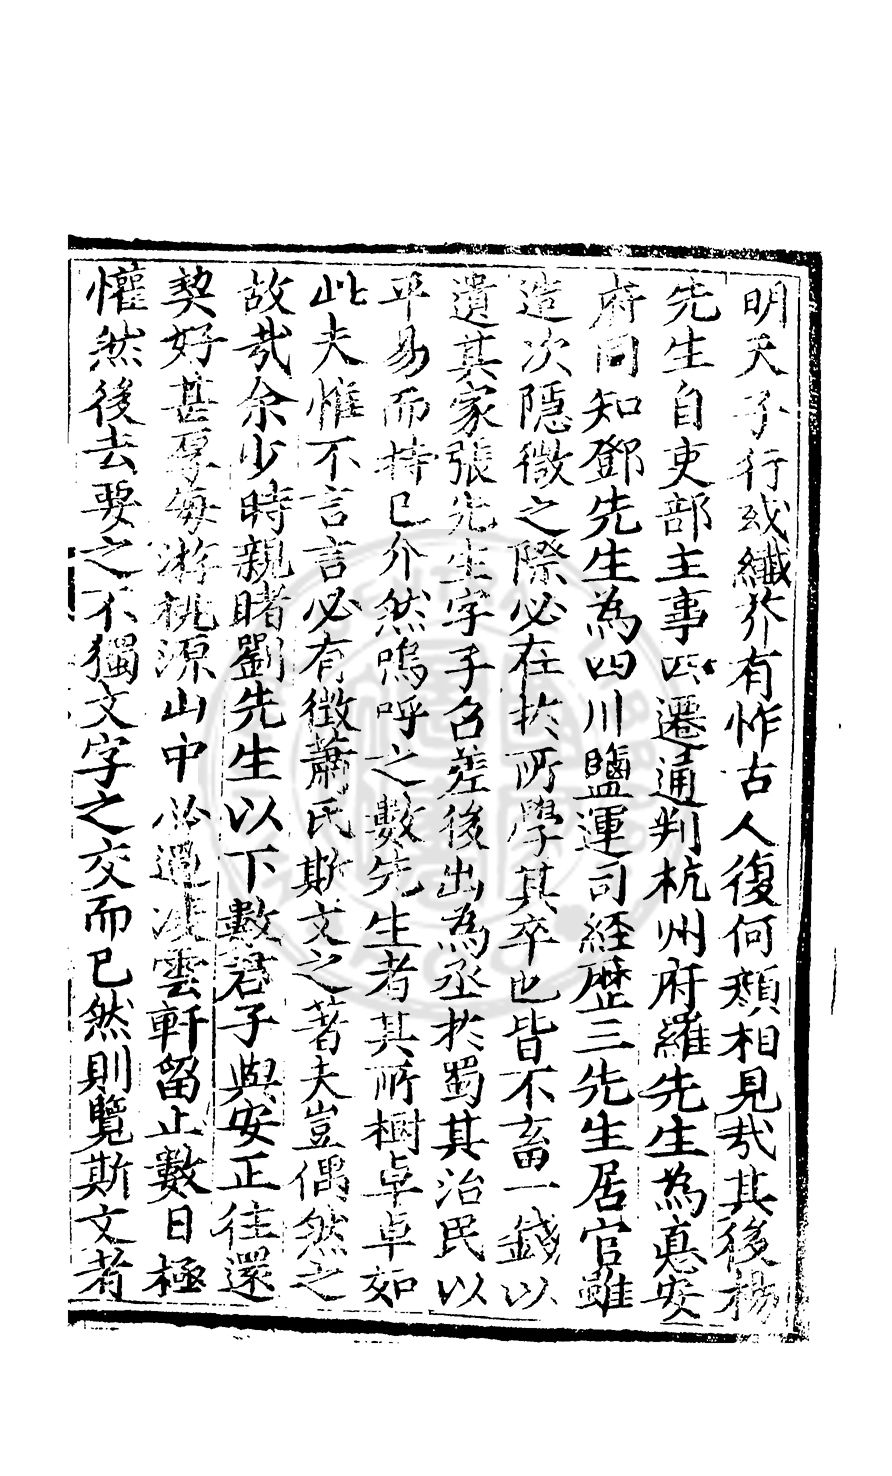 明天子行或纖芥有怍古人復何顏相見哉其後楊
先生自吏部主事四遷通判杭州府羅先生為惪安
府同知鄧先生為四川鹽運司經歷三先生居官雖
造次隱微之際必在於所學其卒也皆不畜一錢以
遺其家張先生字子名差後出為丞於蜀其治民以
平易而持已介然嗚呼之數先生者其所樹卓卓如
此夫惟不言言必有徵蕭氏斯文之著夫豈偶然之
故哉余少時親睹劉先生以下數君子與安正往還
契好甚厚每游桃源山中必過凌雲軒留止數日極
懽然後去要之不獨文字之交而已然則覽斯文者